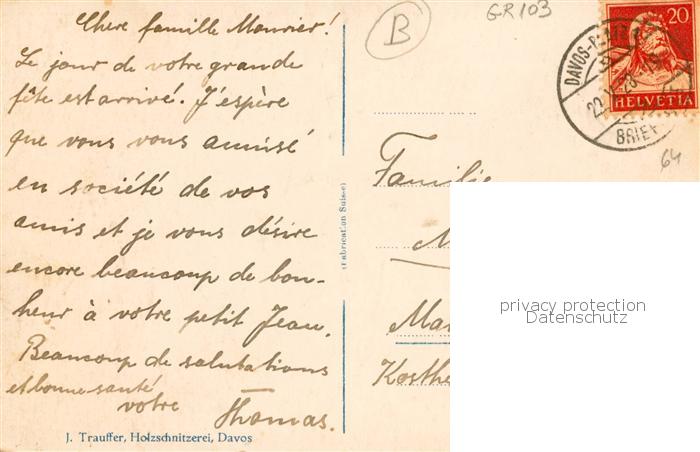 Chere famille Meurier!
Le jour de votre grande
fête est arrivé. J'espère
que vous vous amusé
en société de vos
amis et je vous désire
encore beaucoup de bon-
heur à votre petit Jean.
Beaucoup de salutations
et bonne santé
votre Thomas.
J. Trauffer, Holzschnitzerei, Davos
(Fabrication Suisse)
B
GR103
20
HELVETIA
DAVOS-PLATZ
22.V.28
BRIEF
64
Familie
M
Mai
Kosthe
privacy protection
Datenschutz